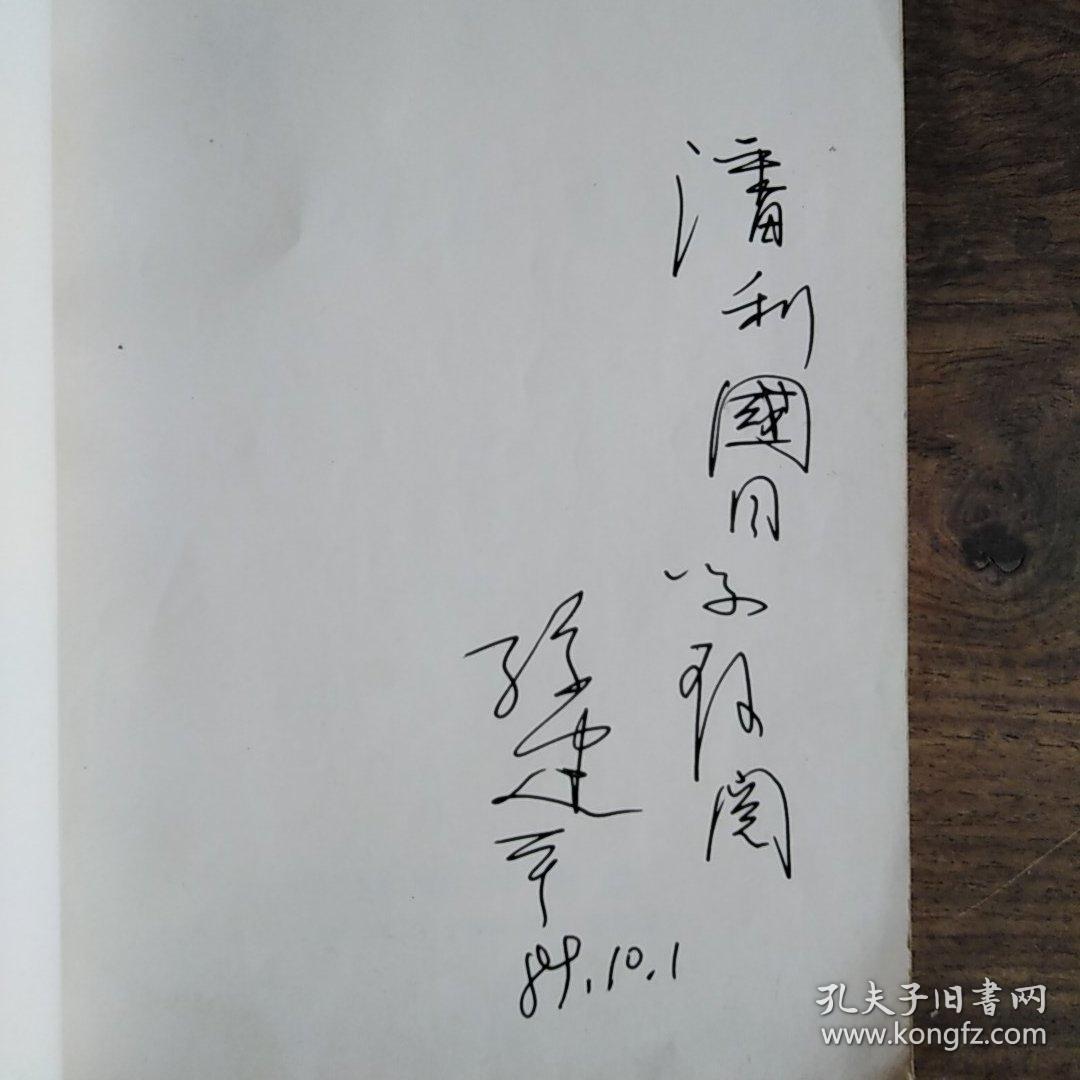 潘利國同学存阅
孙建平
84.10.1
孔夫子旧書网
www.kongfz.com